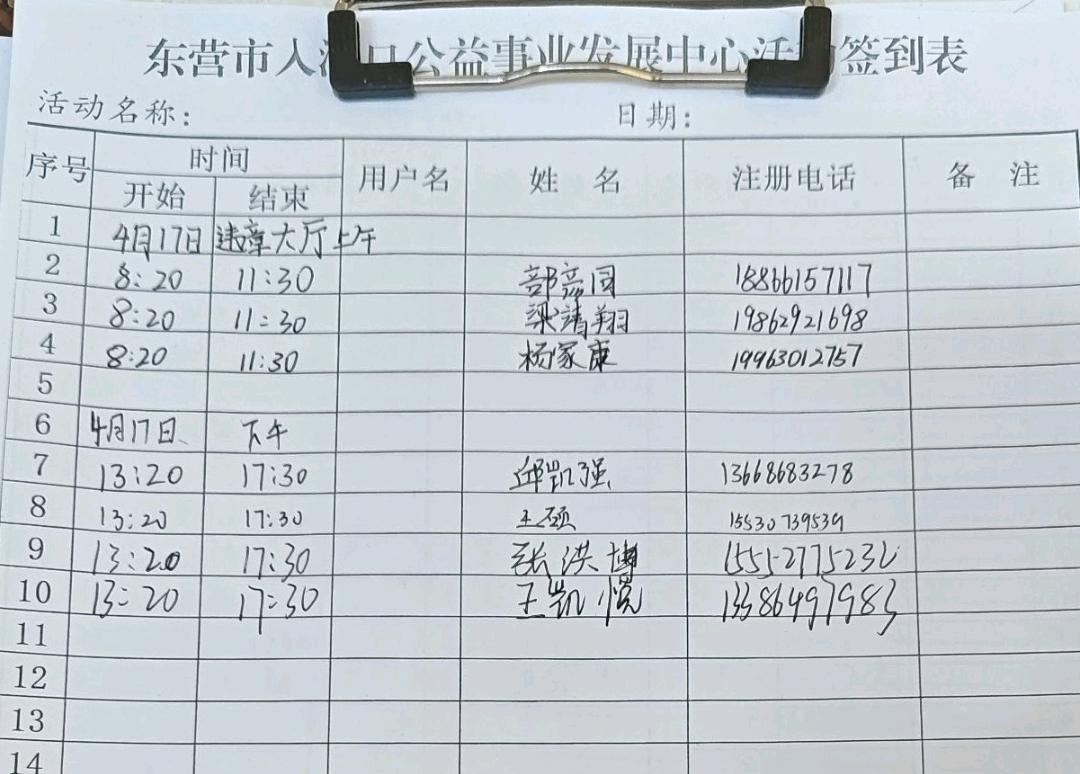 东营市入海口公益事业发展中心活动签到表
活动名称： 日期：
序号 时间 用户名 姓 名 注册电话 备 注
开始 结束
1 4月17日 违章大厅上午
2 8:20 11:30 18866157117
3 8:20 11:30 梁清翔 19862921698
4 8:20 11:30 杨家康 19963012757
5
6 4月17日、 下午
7 13:20 17:30 邱凯强 13668683278
8 13:20 17:30 王硕 15530739539
9 13:20 17:30 张洪博 15552775232
10 13:20 17:30 王凯悦 13386497983
11
12
13
14